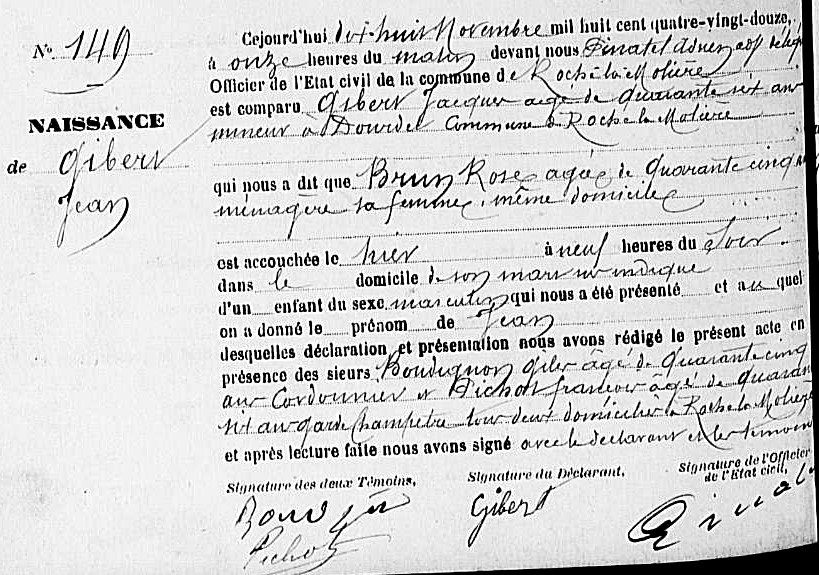 N° 149
NAISSANCE
de Gibert
Jean
Cejourd'hui dix-huit Novembre mil huit cent quatre-vingt-douze,
à onze heures du matin devant nous Pinatel
Officier de l'Etat civil de la commune de Roche la Molière
est comparu Gibert Jacques agé de quarante six ans
mineur à Dourdel Commune de Roche la Molière
qui nous a dit que Brun Rose agée de quarante cinq
ménagère sa femme, même domicile
est accouchée le hier à neuf heures du soir.
dans le domicile de son mari sus indiqué
d'un enfant du sexe masculin qui nous a été présenté et au quel
on a donné le prénom de Jean
desquelles déclaration et présentation nous avons rédigé le présent acte en
présence des sieurs Boudugnon âgé de quarante cinq
ans Cordonnier et Pichot françois âgé de quaran
six ans garde Champêtre tous deux domiciliés à Roche la Molière
et après lecture faite nous avons signé avec le déclarant et les témoins
Signature des deux Témoins,
Signature du Déclarant,
Signature de l'Officier
de l'Etat civil,
Gibert
Pichot